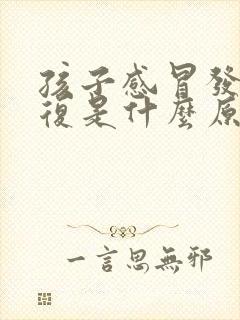 孩子感冒發
復是什麼原
一言思無邪